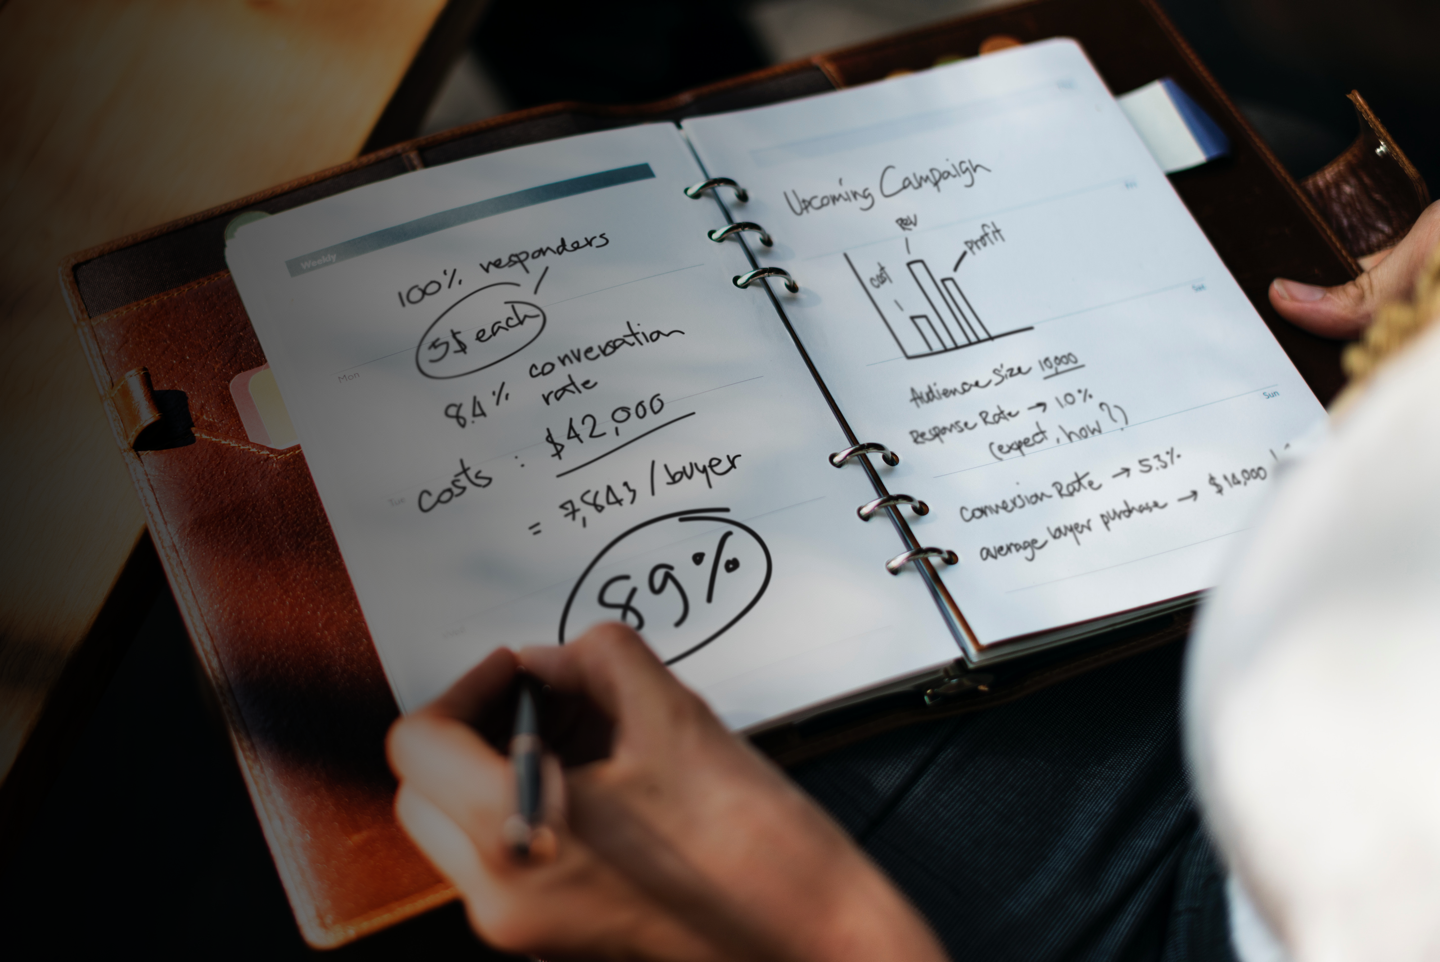 Weekly
100% responders
5$ each
Mon
8.4% conversation
rate
costs : $42,000
= 7,843 / buyer
89%
Upcoming Campaign
REV
cost
profit
Fri
Sat
Audience Size 10,000
Response Rate → 10%
(expect, how?)
Sun
Conversion Rate → 5.3%
average buyer purchase → $14,000